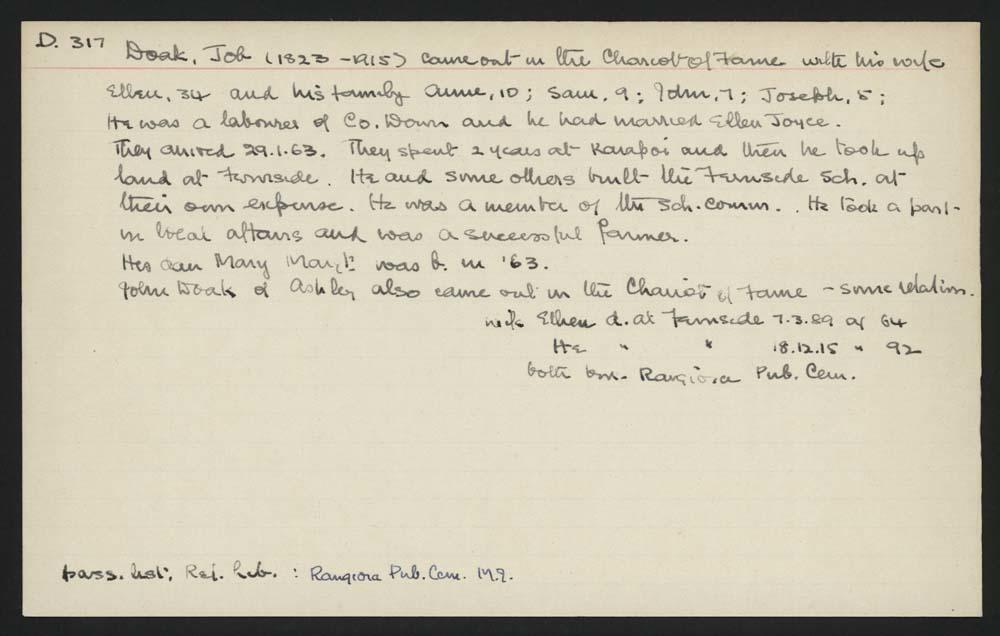 D. 317 Doak, Job (1823 - 1915) came out in the Chariot of Fame with his wife
Ellen, 34 and his family Anne, 10; Sam, 9; John, 7; Joseph, 5;
He was a labourer of Co. Down and he had married Ellen Joyce.
They arrived 29.1.63. They spent 2 years at Kaiapoi and then he took up
land at Fernside. He and some others built the Fernside Sch. at
their own expense. He was a member of the Sch. Comm.. He took a part
in local affairs and was a successful farmer.
His dau Mary was b. in '63.
John Doak of Ashley also came out in the Chariot of Fame - some relation.
wife Ellen d. at Fernside 7.3.89 ag 64
He " " 18.12.15 " 92
both bur. Rangiora Pub. Cem.
pass. list; Ref. Lib. : Rangiora Pub. Cem. M.I.